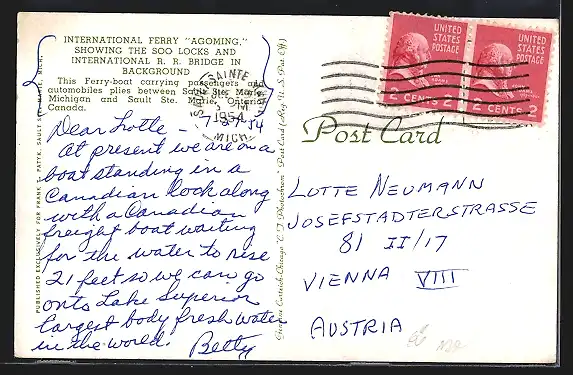 INTERNATIONAL FERRY "AGOMING,"
SHOWING THE SOO LOCKS AND
INTERNATIONAL R. R. BRIDGE IN
BACKGROUND
This Ferry-boat carrying passengers and
automobiles plies between Sault Ste. Marie,
Michigan and Sault Ste. Marie, Ontario,
Canada.
Dear Lotte - 7-27-54
At present we are on a
boat standing in a
Canadian lock along
with a Canadian
freight boat waiting
for the water to rise
21 feet so we can go
onto Lake Superior
largest body fresh water
in the world.
Betty
PUBLISHED EXCLUSIVELY FOR FRANK T. PATYK, SAULT STE. MARIE, MICH.
Genuine Curteich-Chicago "C. T. Photochrom" Post Card (Reg. U. S. Pat. Off.)
SAINTE
1954
MICH
UNITED
STATES
POSTAGE
2 CENTS 2
UNITED
STATES
POSTAGE
2 CENTS 2
Post Card
LOTTE NEUMANN
JOSEFSTADTERSTRASSE
81 II/17
VIENNA VIII
AUSTRIA